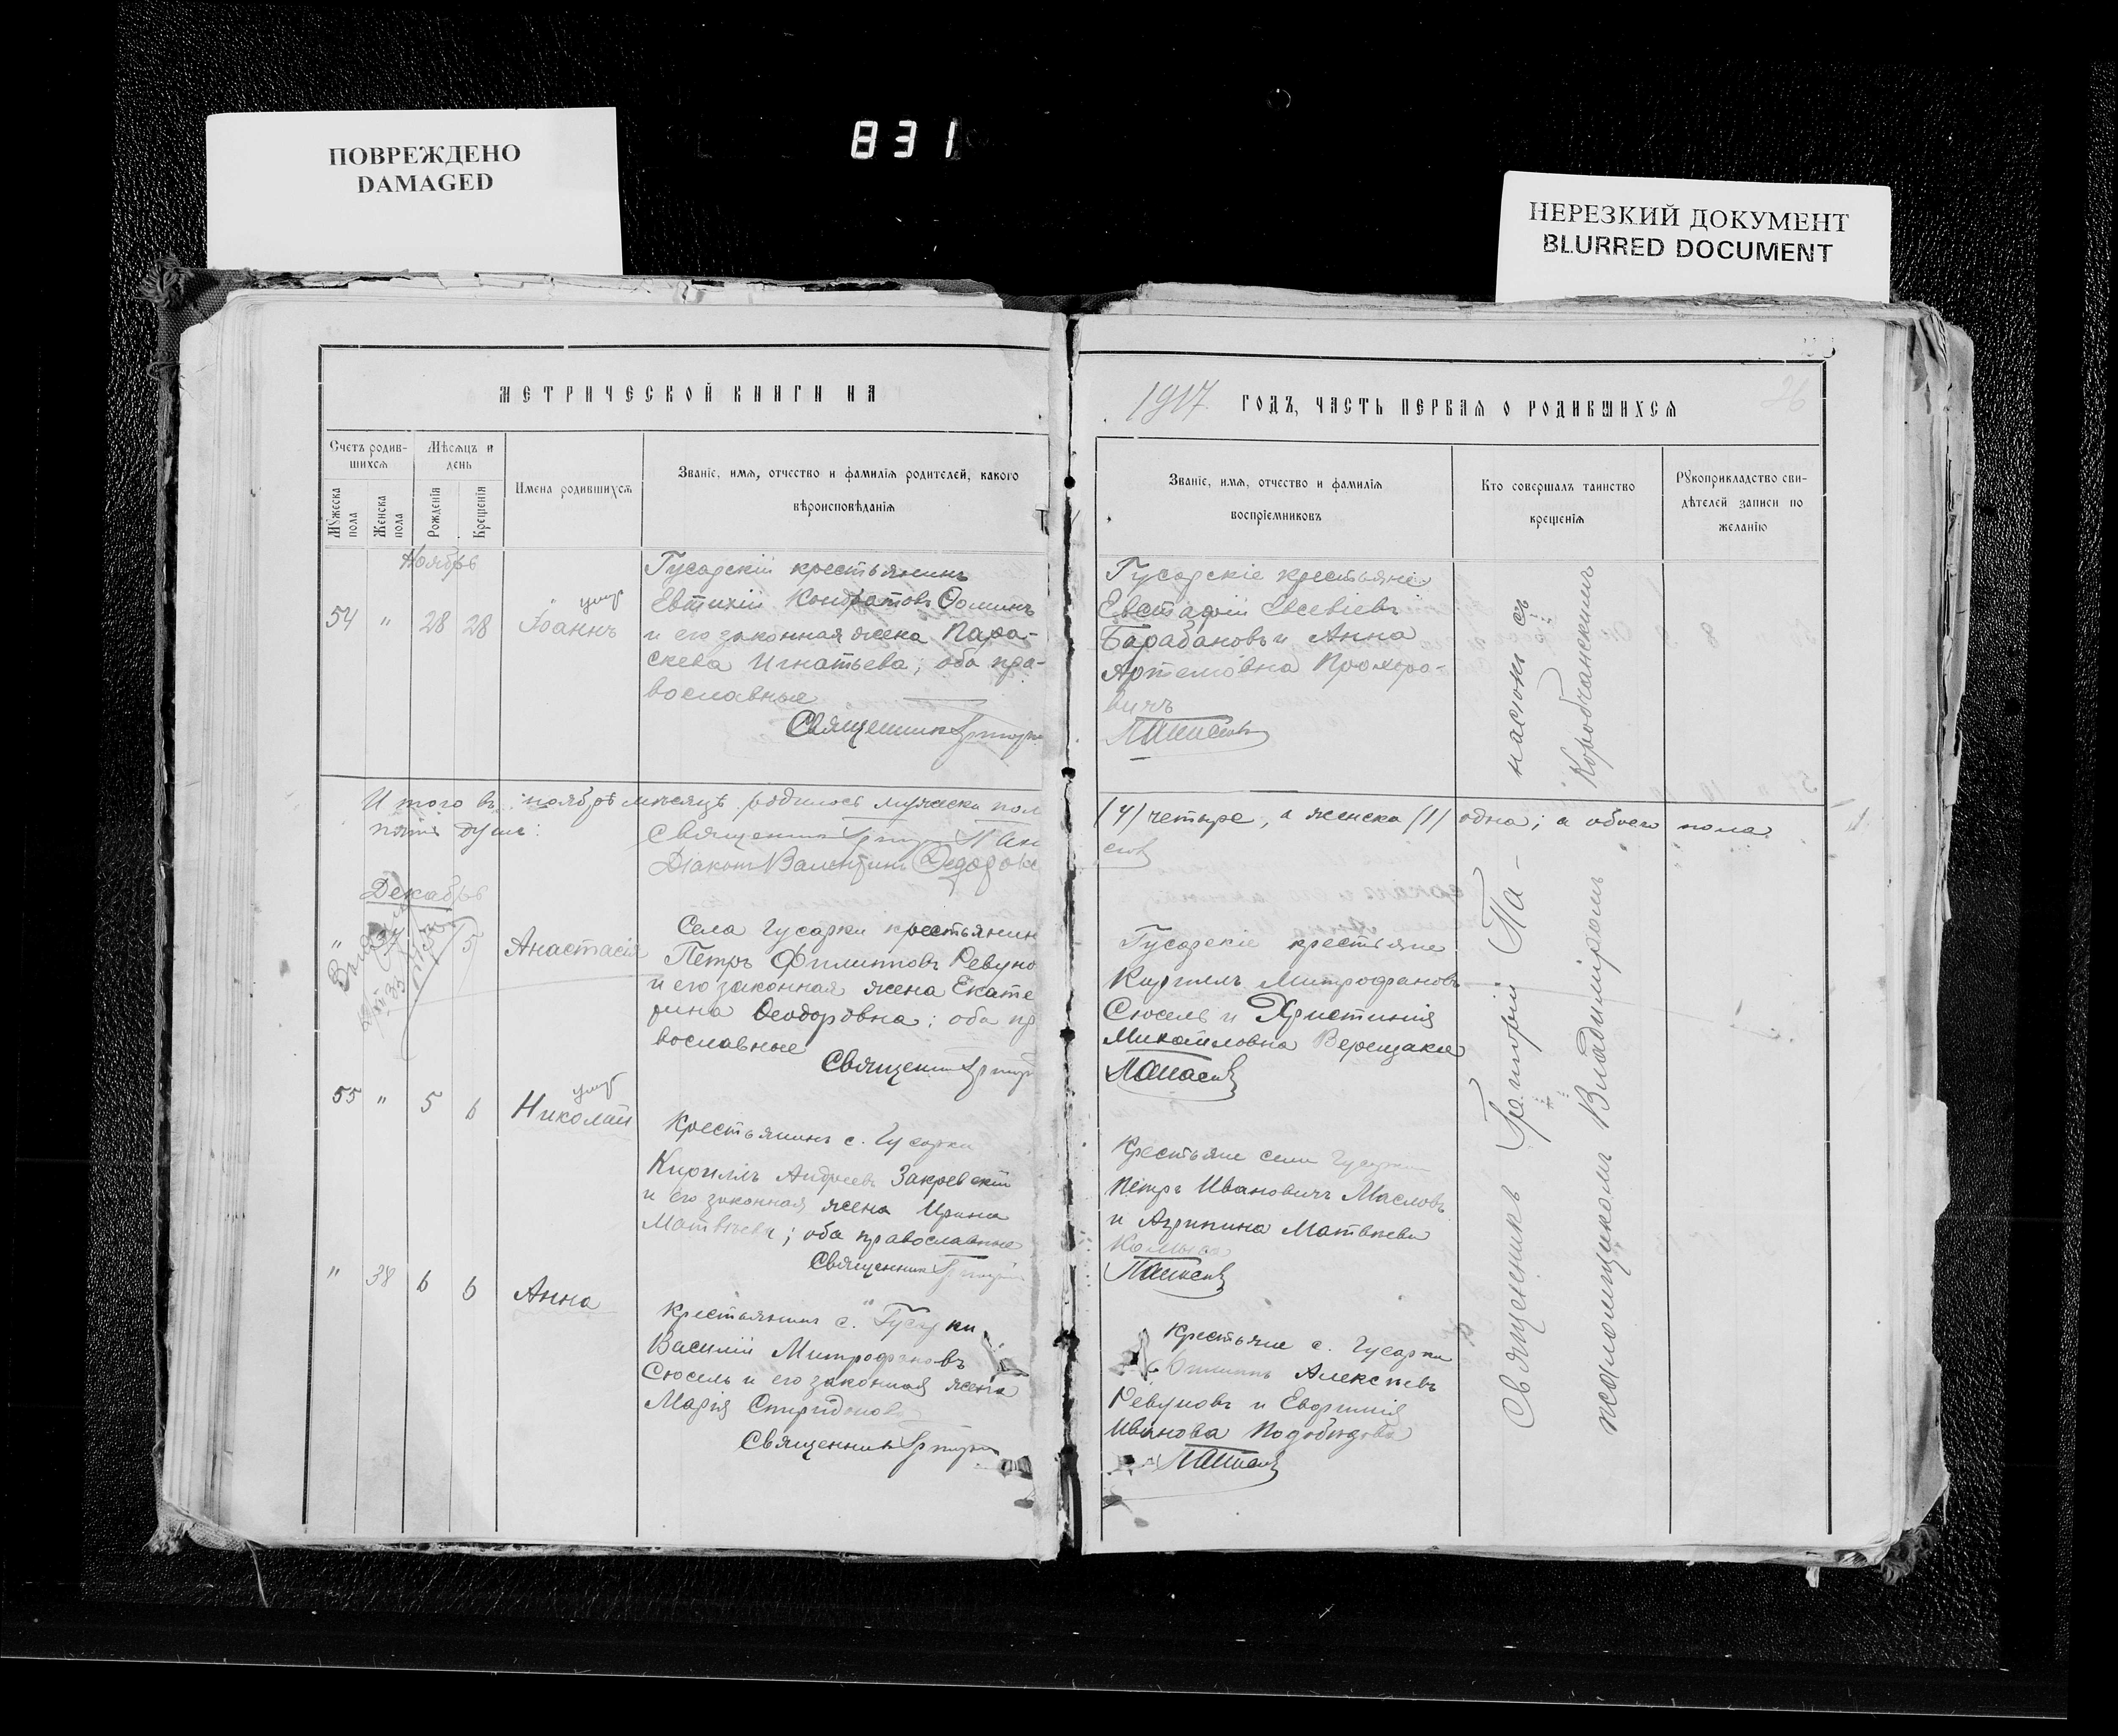 ПОВРЕЖДЕНО
DAMAGED
831
НЕРЕЗКИЙ ДОКУМЕНТ
BLURRED DOCUMENT
МЕТРИЧЕСКОЙ КНИГИ НА
Счетъ родив-
шихся
Мѣсяцъ и
день
Мужеска
пола
Женска
пола
Рожденія
Крещенія
Имена родившихся
Званіе, имя, отчество и фамилія родителей, какого
вѣроисповѣданія
Ноябрь
54 " 28 28
умер
Іоаннъ
Гусарскій крестьянинъ
Евтихій Кондратовъ Ѳоминъ
и его законная жена Пара-
скева Игнатьева; оба пра-
вославные
Священникъ Григорій
Итого въ ноябрѣ мѣсяцѣ родилось мужска пол
пять душъ:
Священникъ Григорій
Діаконъ Валентинъ
Декабрь
" 5
Анастасія
Села Гусарки крестьянин
Петръ Филипповъ Ревуно
и его законная жена Екате
рина Ѳеодоровна; оба пр
вославные
Священникъ Григор
55 " 5 6
умер
Николай
Крестьянинъ с. Гусарки
Кириллъ Андреевъ Закревскій
и его законная жена Ирина
Матвѣева; оба православные
Священникъ Григорій
" 38 6 6
Анна
Крестьянинъ с. Гусарки
Василій Митрофановъ
Сюсель и его законная жена
Марія Спиридонова
Священникъ Григорій
1917 ГОДЪ, ЧАСТЬ ПЕРВАЯ О РОДИВШИХСЯ
26
Званіе, имя, отчество и фамилія
воспріемниковъ
Кто совершалъ таинство
крещенія
Рукоприкладство сви-
дѣтелей записи по
желанію
Гусарскіе крестьяне
Евстафій Евсевіевъ
Барабановъ и Анна
Артемовна Прохоро-
вичъ
(4) четыре, а женска (1) одна; а обоего пола
Гусарскіе крестьяне
Кириллъ Митрофановъ
Сюсель и Христинія
Михайловна Верещака
Крестьяне села Гусарки
Петръ Ивановичъ Масловъ
и Агрипина Матвѣева
Крестьяне с. Гусарки
Алексѣевъ
Ревуновъ и Евфимія
Иванова Подобѣдова
Священникъ Григорій Па-
насюкъ съ
псаломщикомъ Владиміромъ
Коробчанскимъ